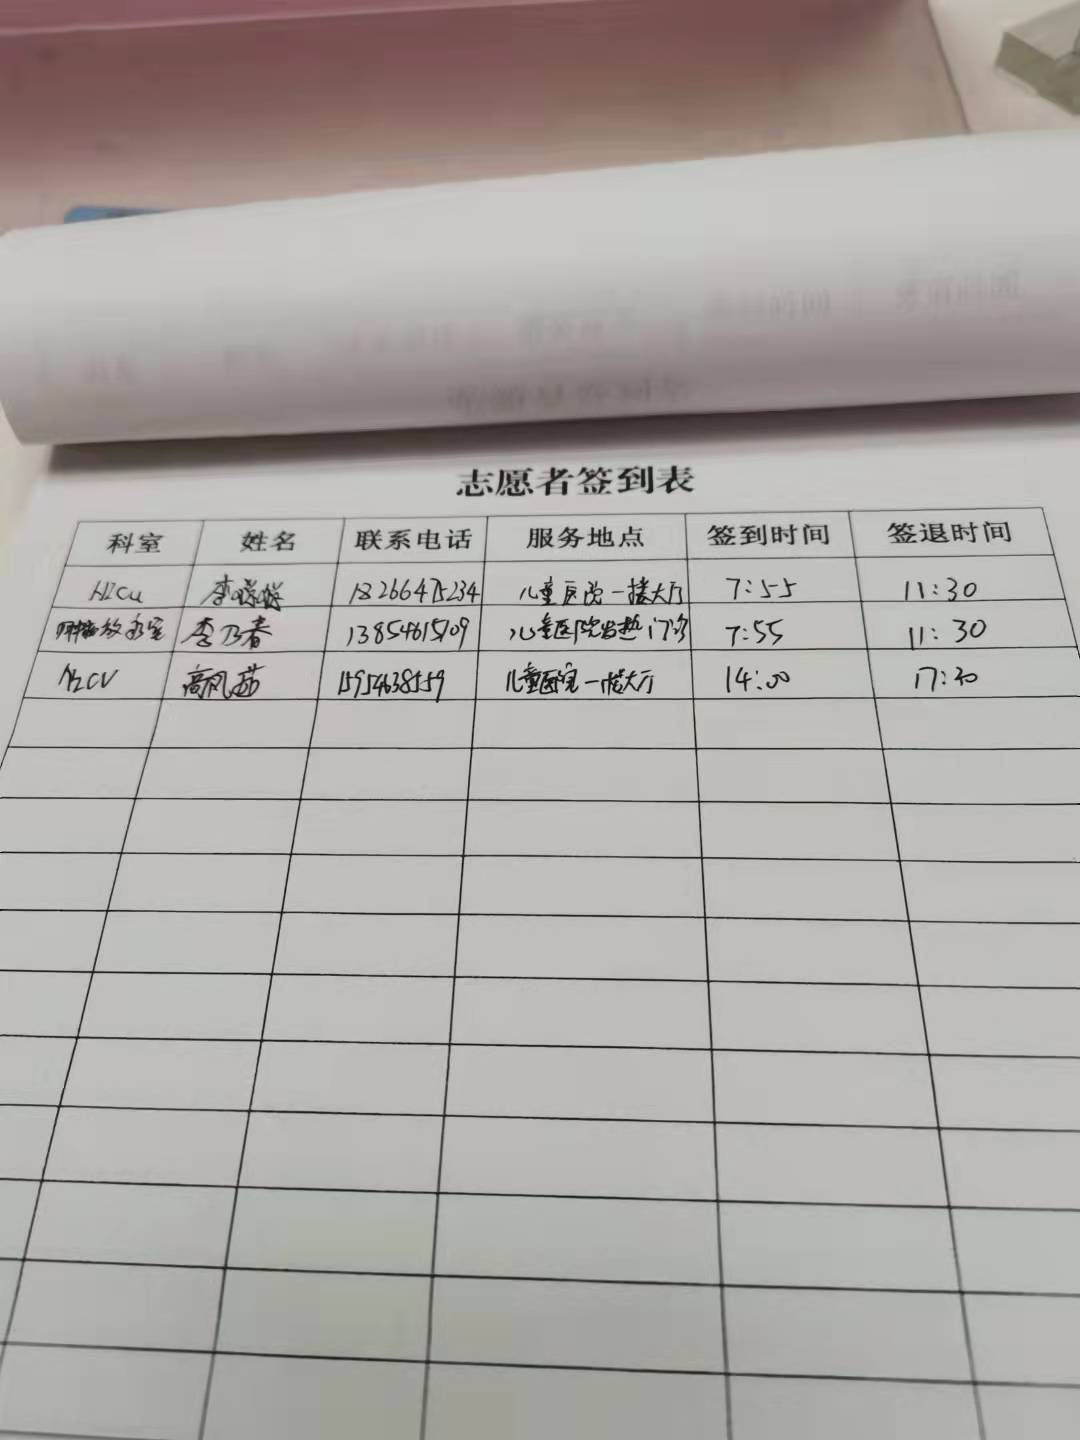 志愿者签到表
科室 姓名 联系电话 服务地点 签到时间 签退时间
NICU 李 18266475234 儿童医院一楼大厅 7:55 11:30
李乃春 13854615109 儿童医院发热门诊 7:55 11:30
NICU 高凤茹 15954638559 儿童医院一楼大厅 14:00 17:30